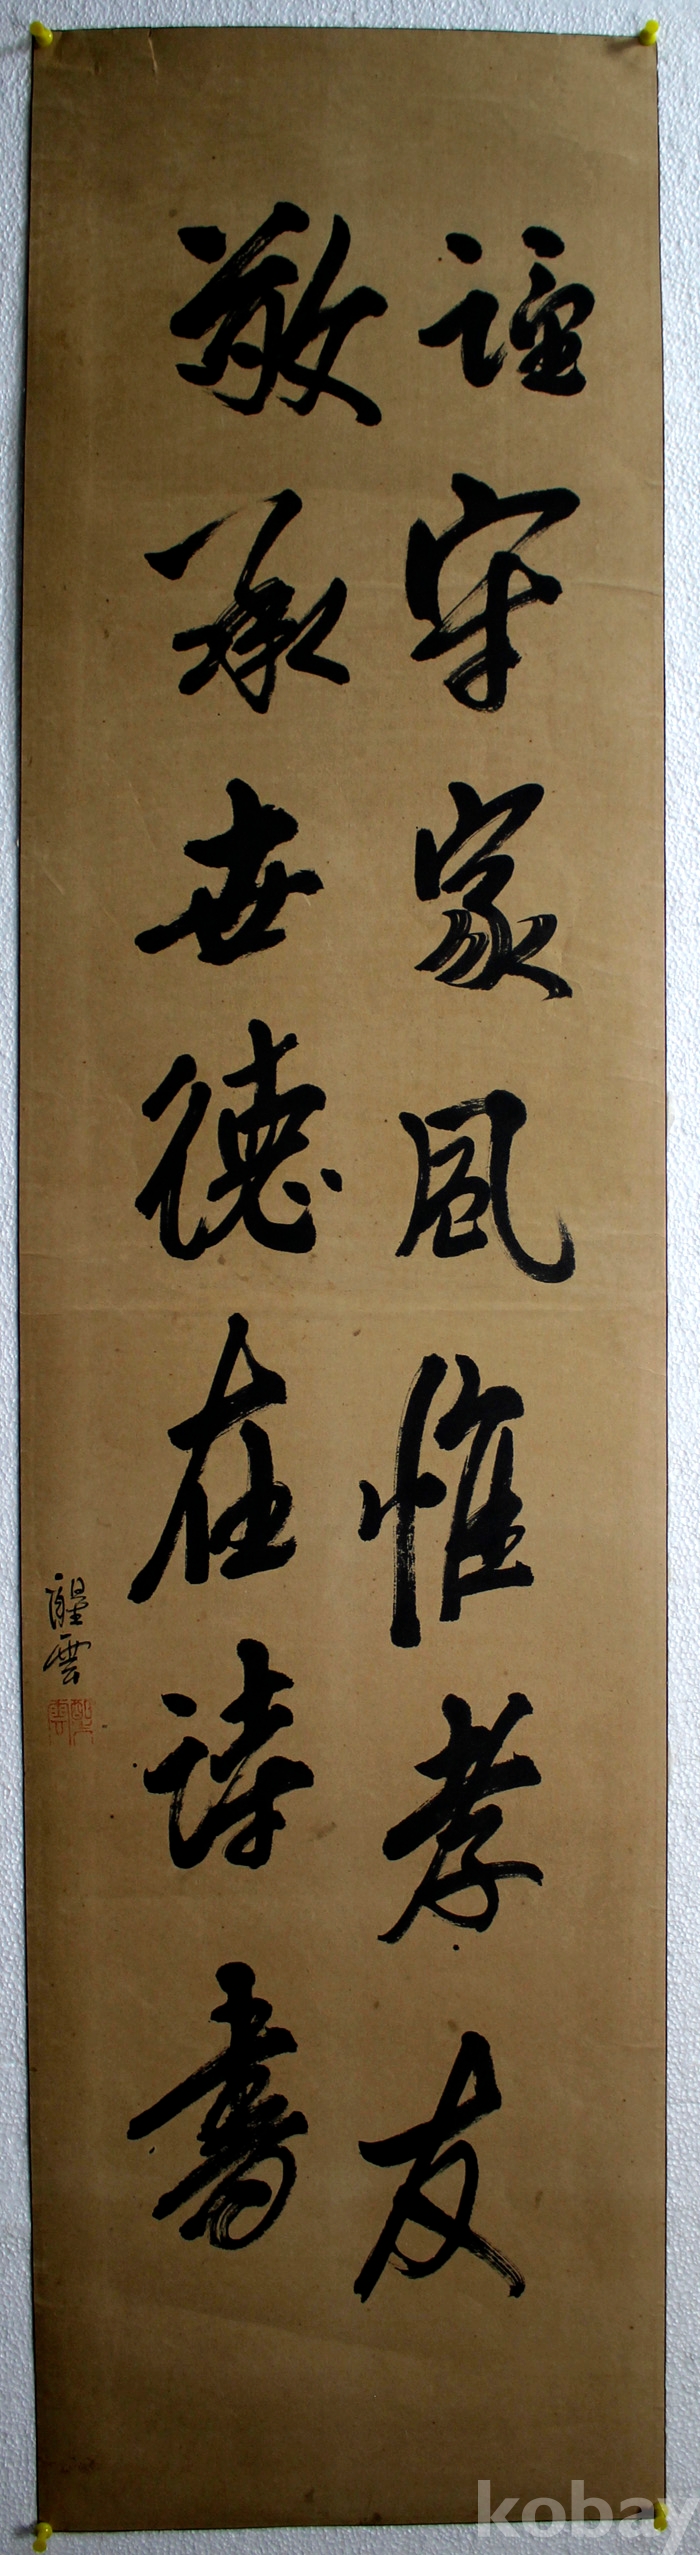 謹守家風惟孝友
敬承世德在詩書
醒雲
kobay